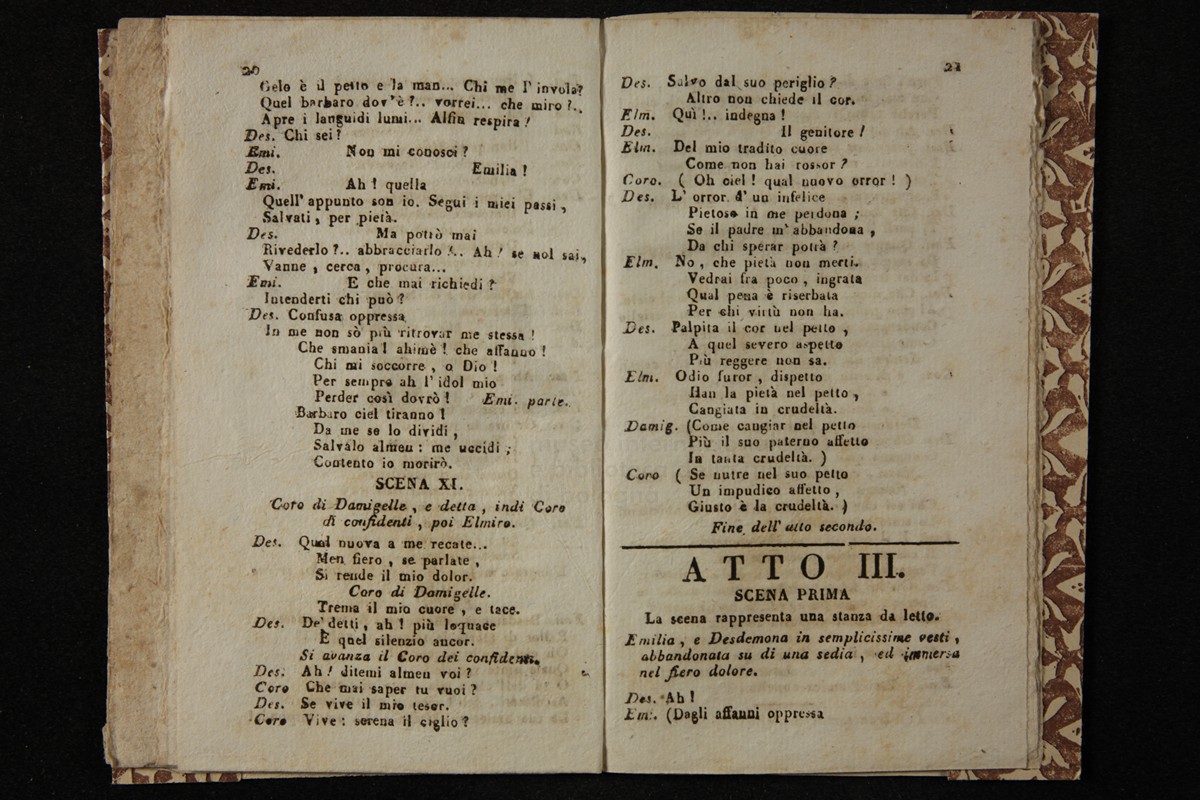 20
Gelo è il petto e la man... Chi me l'invola?
Quel barbaro dov'è?.. vorrei... che miro?..
Apre i languidi lumi... Alfin respira!
Des. Chi sei?
Emi. Non mi conosci?
Des. Emilia!
Emi. Ah! quella
Quell'appunto son io. Segui i miei passi,
Salvati, per pietà.
Des. Ma potrò mai
Rivederlo?.. abbracciarlo?.. Ah! se nol sai,
Vanne, cerca, procura...
Emi. E che mai richiedi?
Intenderti chi può?
Des. Confusa oppressa
In me non sò più ritrovar me stessa!
Che smania! ahimè! che affanno!
Chi mi soccorre, o Dio!
Per sempre ah l'idol mio
Perder così dovrò! Emi. parte.
Barbaro ciel tiranno!
Da me se lo dividi,
Salvalo almen: me uccidi;
Contento io morirò.
SCENA XI.
Coro di Damigelle, e detta, indi Coro
di confidenti, poi Elmiro.
Des. Qual nuova a me recate...
Men fiero, se parlate,
Si rende il mio dolor.
Coro di Damigelle.
Trema il mio cuore, e tace.
Des. De' detti, ah! più loquace
È quel silenzio ancor.
Si avanza il Coro dei confidenti.
Des. Ah! ditemi almen voi?
Coro Che mai saper tu vuoi?
Des. Se vive il mio tesor.
Coro Vive: serena il ciglio?
21
Des. Salvo dal suo periglio?
Altro non chiede il cor.
Elm. Quì!.. indegna!
Des. Il genitore!
Elm. Del mio tradito cuore
Come non hai rossor?
Coro. ( Oh ciel! qual nuovo orror! )
Des. L'orror d'un infelice
Pietoso in me perdona;
Se il padre m'abbandona,
Da chi sperar potrà?
Elm. No, che pietà non merti.
Vedrai fra poco, ingrata
Qual pena è riserbata
Per chi virtù non ha.
Des. Palpita il cor nel petto,
A quel severo aspetto
Più reggere non sa.
Elm. Odio furor, dispetto
Han la pietà nel petto,
Cangiata in crudeltà.
Damig. (Come cangiar nel petto
Più il suo paterno affetto
In tanta crudeltà. )
Coro ( Se nutre nel suo petto
Un impudico affetto,
Giusto è la crudeltà. )
Fine dell'atto secondo.
ATTO III.
SCENA PRIMA
La scena rappresenta una stanza da letto.
Emilia, e Desdemona in semplicissime vesti,
abbandonata su di una sedia, ed immersa
nel fiero dolore.
Des. Ah!
Emi. (Dagli affanni oppressa